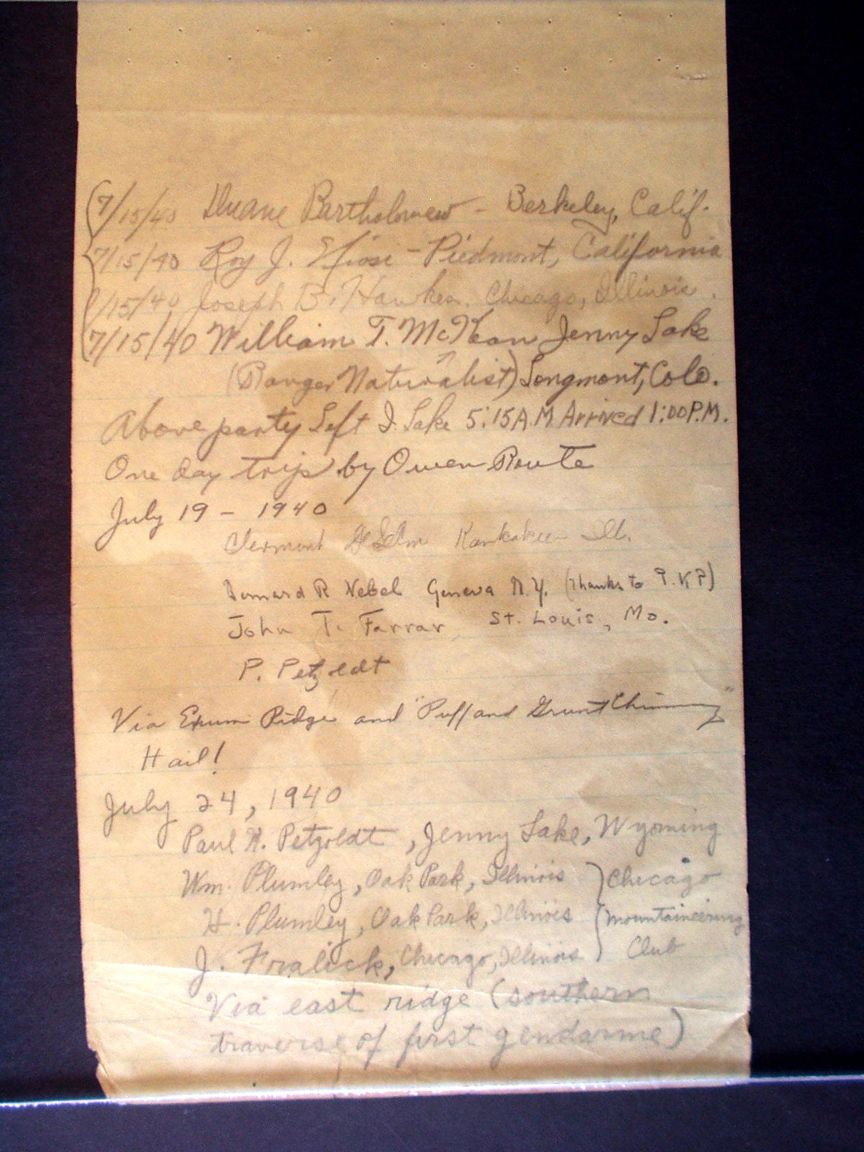 7/15/40 Duane Bartholomew - Berkeley, Calif.
7/15/40 Roy J. - Piedmont, California
7/15/40 Joseph B. Hawkes. Chicago, Illinois.
7/15/40 William T. McKean Jenny Lake
(Ranger Naturalist) Longmont, Colo.
Above party Left J. Lake 5:15A.M Arrived 1:00P.M.
One day trip by Owen Route
July 19 - 1940
Clermont Kankakee Ill.
Bernard R Nebel Geneva N.Y. (thanks to P.K.P)
John T. Farrar St. Louis, Mo.
P. Petzoldt
Via Exum Ridge and "Puff and Grunt Chimney"
Hail!
July 24, 1940
Paul K. Petzoldt, Jenny Lake, Wyoming
Wm. Plumley, Oak Park, Illinois } Chicago
H. Plumley, Oak Park, Illinois } Mountaineering
J. Fralick, Chicago, Illinois } Club
Via east ridge (southern
traverse of first gendarme)